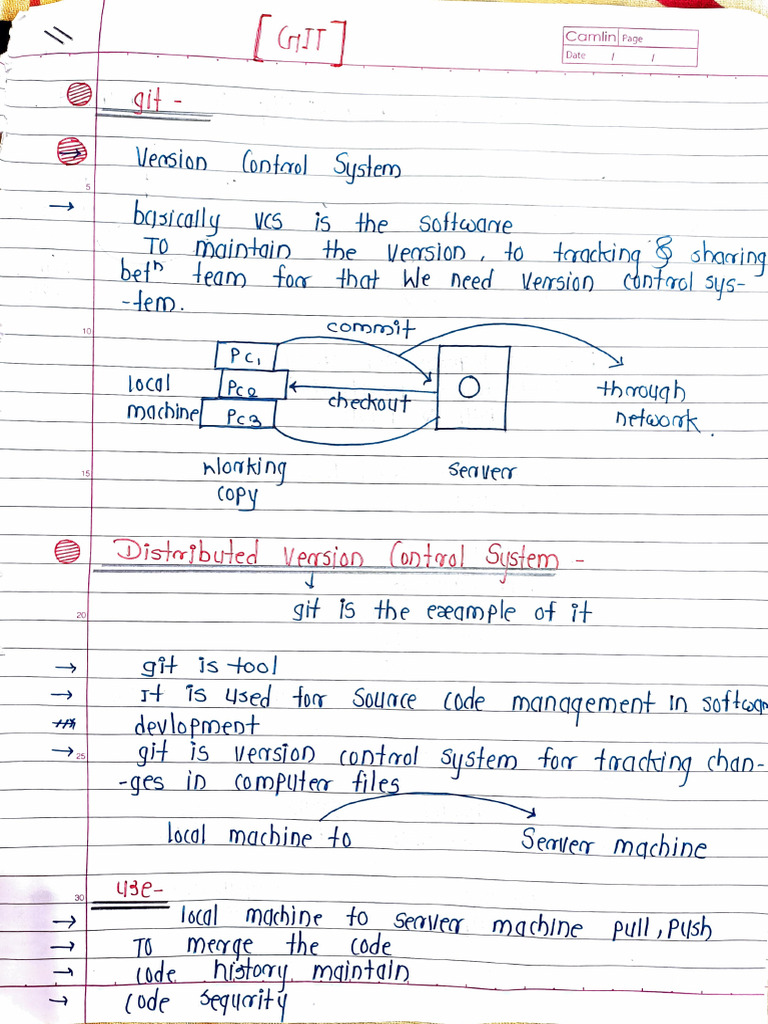 [GIT]
Camlin Page
Date / /
git -
Version Control System
5
→ basically VCS is the software
To maintain the version, to tracking & sharing
betn team for that We need version control sys-
-tem.
10
commit
PC1
PC2
PC3
local
machine
checkout
through
network.
15
Working
copy
server
Distributed Version Control System -
↓
git is the example of it
20
→ git is tool
→ It is used for source code management in softwar
devlopment
→ git is version control system for tracking chan-
25
-ges in computer files
local machine to Server machine
30
use-
→ local machine to server machine pull, push
→ To merge the code
→ code history maintain
→ code sequrity